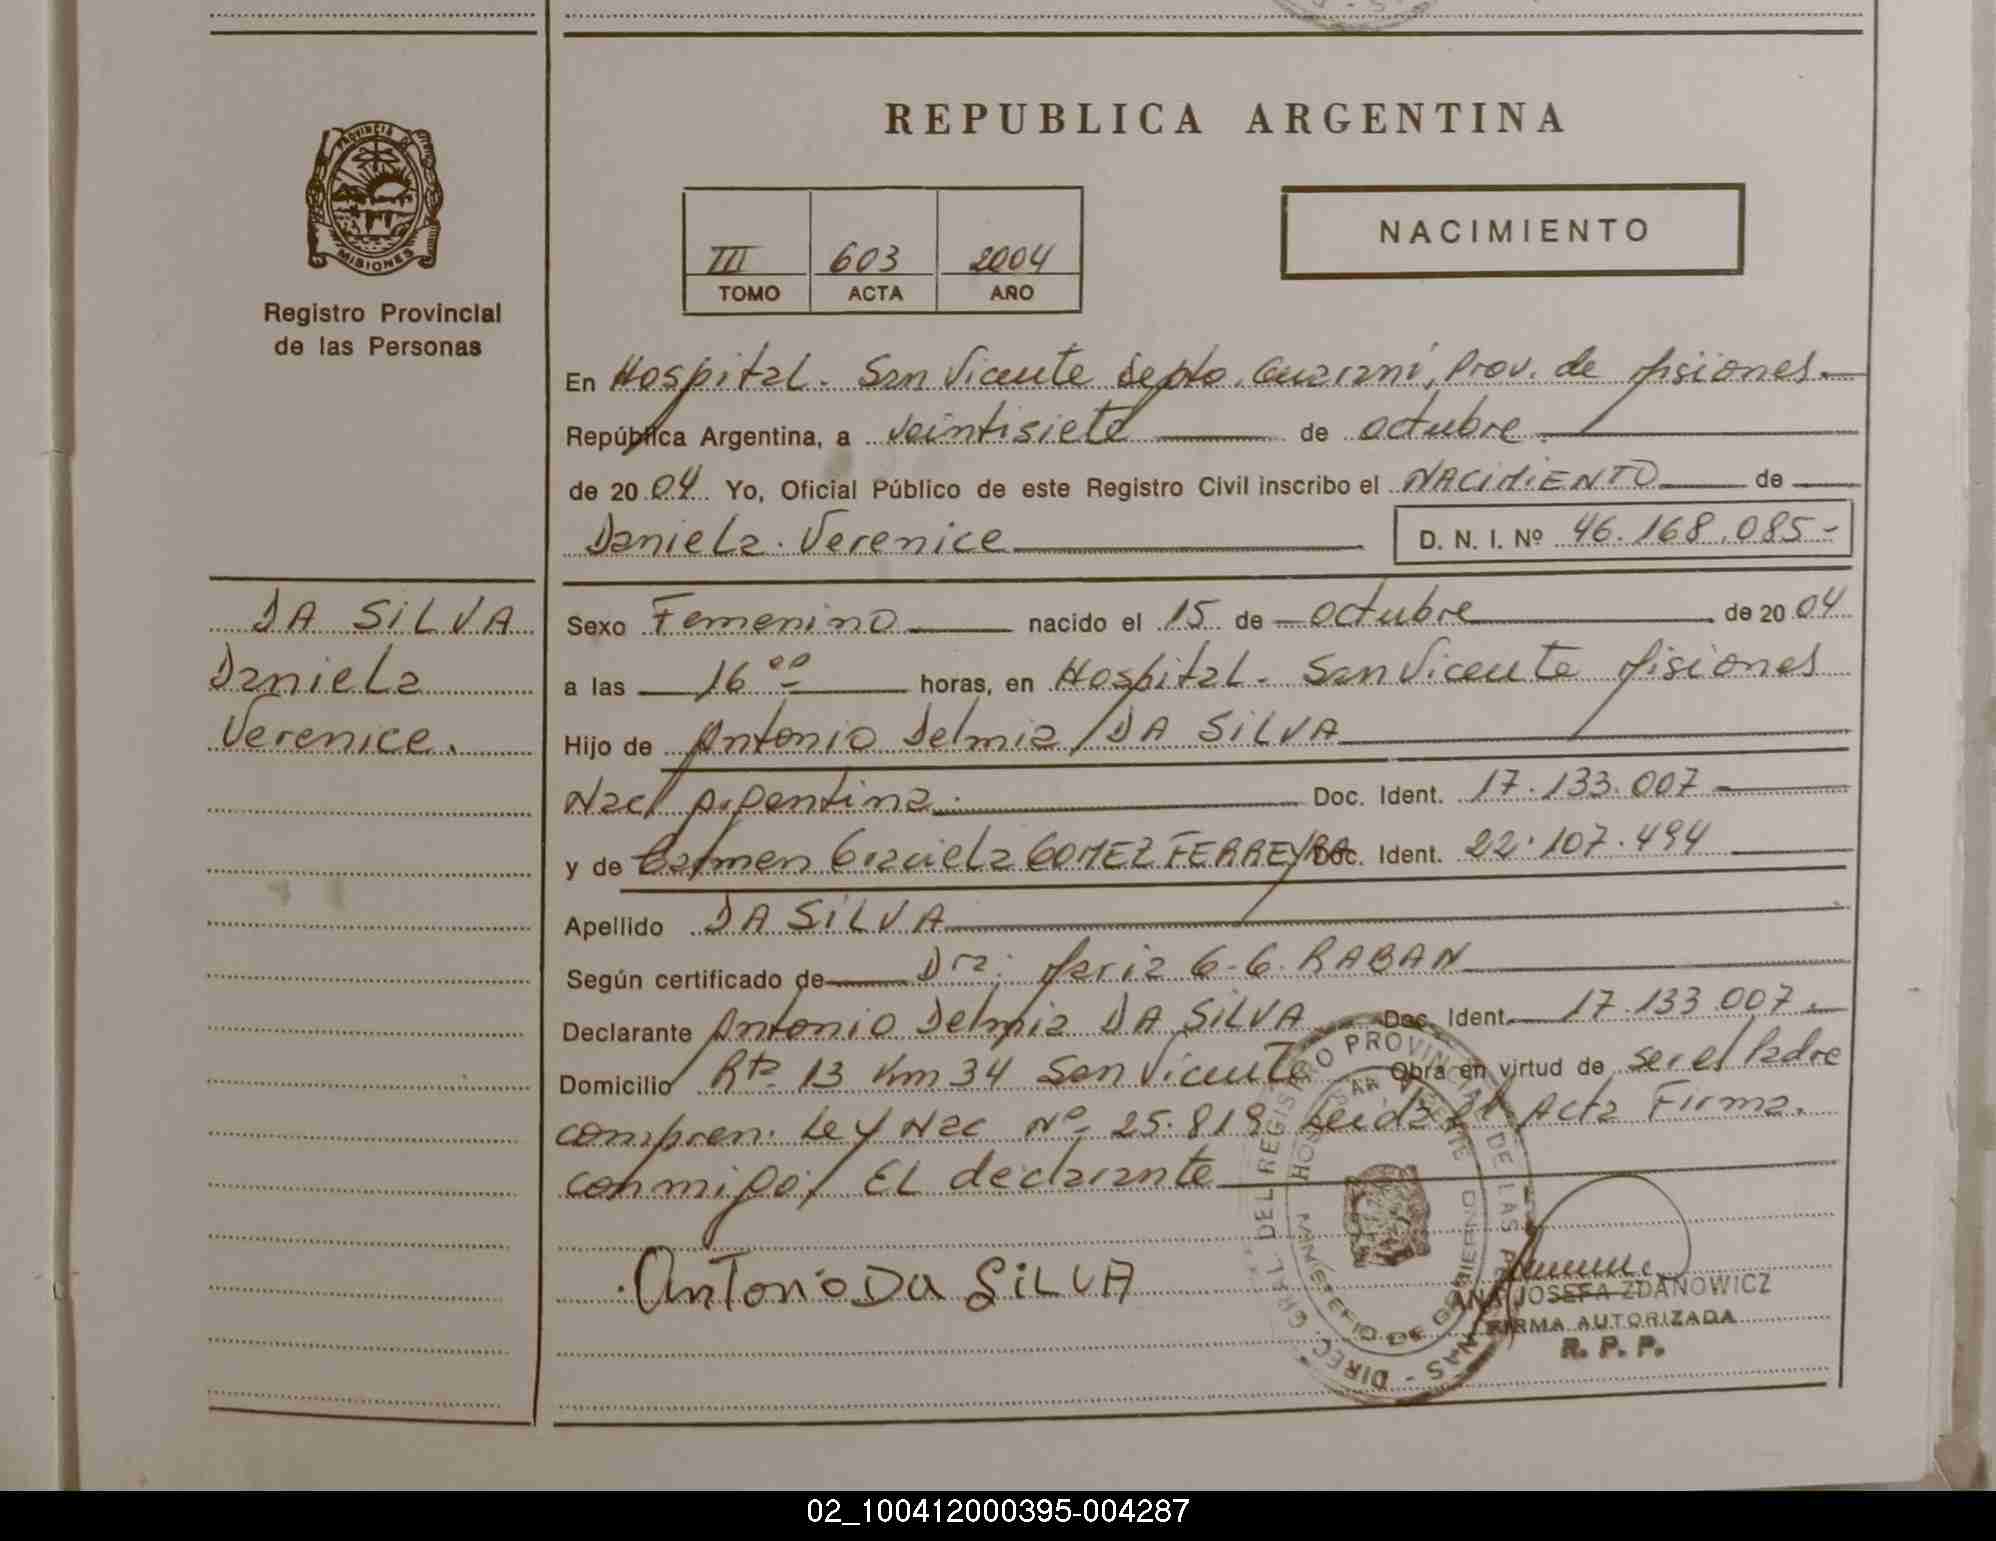 REPUBLICA ARGENTINA
PROVINCIA DE
MISIONES
Registro Provincial
de las Personas
III 603 2004
TOMO ACTA AÑO
NACIMIENTO
En Hospital. San Vicente Depto. Guaraní, Prov. de Misiones.
República Argentina, a veintisiete de octubre
de 2004 Yo, Oficial Público de este Registro Civil inscribo el NACIMIENTO de
Daniela Verenice
D. N. I. Nº 46.168.085-
DA SILVA
Daniela
Verenice.
Sexo Femenino nacido el 15 de octubre de 2004
a las 16 00 horas, en Hospital - San Vicente Misiones
Hijo de Antonio Delmia DA SILVA
Nac. Argentina Doc. Ident. 17.133.007
y de Carmen Graciela GOMEZ FERREYRA Doc. Ident. 22.107.494
Apellido DA SILVA
Según certificado de Dra: Maria G. G. RABAN
Declarante Antonio Delmia DA SILVA Doc. Ident. 17.133.007.
Domicilio Rta 13 Km 34 San Vicente Obra en virtud de ser el Padre
compren. Ley Nac Nº 25.819 Leida el Acta Firma.
conmigo, EL declarante
Antonio Da SILVA
DIREC. GRAL. DEL REGISTRO PROVINCIAL DE LAS PERSONAS -
HOSP. SAN VICENTE
MINISTERIO DE GOBIERNO
ANA JOSEFA ZDANOWICZ
FIRMA AUTORIZADA
R. P. P.
02_100412000395-004287